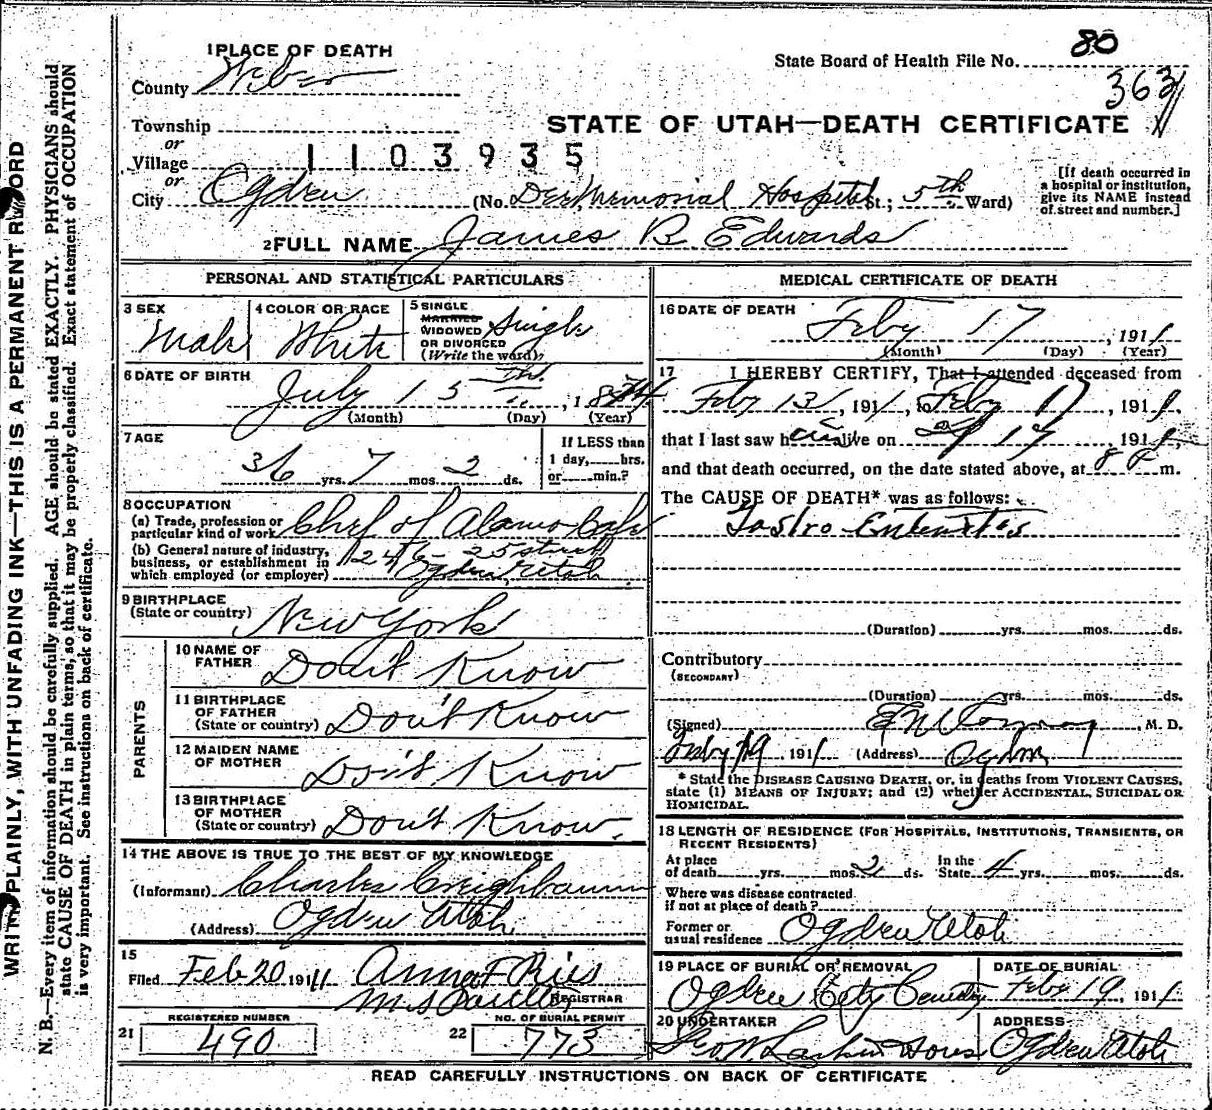 WRITE PLAINLY, WITH UNFADING INK—THIS IS A PERMANENT RECORD
N. B.—Every item of information should be carefully supplied. AGE should be stated EXACTLY. PHYSICIANS should
state CAUSE OF DEATH in plain terms, so that it may be properly classified. Exact statement of OCCUPATION
is very important. See instructions on back of certificate.
1 PLACE OF DEATH
County Weber
Township
or
Village
or
City Ogden
1103935
State Board of Health File No. 80
363
STATE OF UTAH—DEATH CERTIFICATE
(No. Dee Memorial Hospital St.; 5th Ward)
[If death occurred in
a hospital or institution,
give its NAME instead
of street and number.]
2 FULL NAME James B Edwards
PERSONAL AND STATISTICAL PARTICULARS
3 SEX
Male
4 COLOR OR RACE
White
5 SINGLE
MARRIED
WIDOWED
OR DIVORCED
(Write the word)
Single
6 DATE OF BIRTH
July 15th, 1874
(Month) (Day) (Year)
7 AGE
36 yrs. 7 mos. 2 ds.
If LESS than
1 day, hrs.
or min.?
8 OCCUPATION
(a) Trade, profession or
particular kind of work Chef of Alamo Cafe
(b) General nature of industry,
business, or establishment in
which employed (or employer)
246 - 25 street
Ogden, Utah
9 BIRTHPLACE
(State or country) New York
PARENTS
10 NAME OF
FATHER Don't Know
11 BIRTHPLACE
OF FATHER
(State or country) Don't Know
12 MAIDEN NAME
OF MOTHER Don't Know
13 BIRTHPLACE
OF MOTHER
(State or country) Don't Know.
14 THE ABOVE IS TRUE TO THE BEST OF MY KNOWLEDGE
(Informant) Charles Creighbaum
(Address) Ogden Utah
15
Filed Feb 20 1911 Anna F Ries
REGISTRAR
REGISTERED NUMBER
21 490
NO. OF BURIAL PERMIT
22 773
MEDICAL CERTIFICATE OF DEATH
16 DATE OF DEATH
Feby 17, 1911
(Month) (Day) (Year)
17 I HEREBY CERTIFY, That I attended deceased from
Feby 13, 1911, to Feby 17, 1911.
that I last saw him alive on 17, 1911
and that death occurred, on the date stated above, at 8 P m.
The CAUSE OF DEATH* was as follows:
Gastro Enteritis
(Duration) yrs. mos. ds.
Contributory
(SECONDARY)
(Duration) yrs. mos. ds.
(Signed) M. D.
Feby 19 1911 (Address) Ogden
* State the DISEASE CAUSING DEATH, or, in deaths from VIOLENT CAUSES,
state (1) MEANS OF INJURY; and (2) whether ACCIDENTAL, SUICIDAL OR
HOMICIDAL.
18 LENGTH OF RESIDENCE (FOR HOSPITALS, INSTITUTIONS, TRANSIENTS, OR
RECENT RESIDENTS)
At place
of death yrs. mos. 2 ds.
In the
State 4 yrs. mos. ds.
Where was disease contracted
if not at place of death?
Former or
usual residence Ogden Utah
19 PLACE OF BURIAL OR REMOVAL
Ogden City Cemetery
DATE OF BURIAL
Feby 19, 1911
20 UNDERTAKER
Geo W Larkin Sons
ADDRESS
Ogden Utah
READ CAREFULLY INSTRUCTIONS ON BACK OF CERTIFICATE